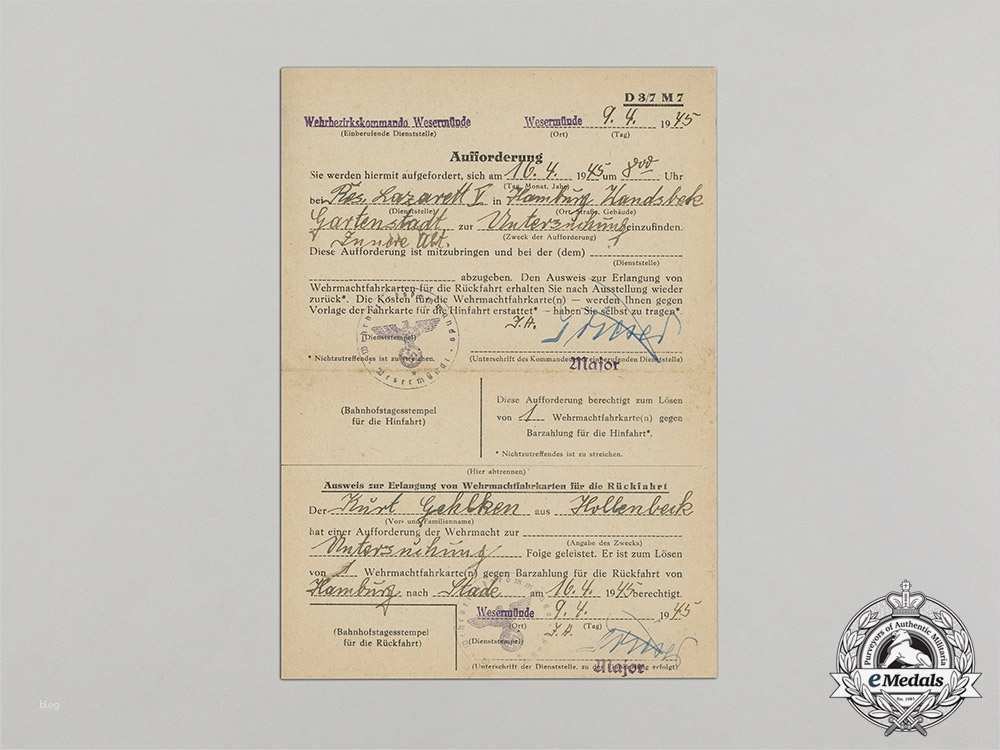 D 3/7 M 7
Wehrbezirkskommando Wesermünde
(Einberufende Dienststelle)
Wesermünde 9. 4. 1945
(Ort) (Tag)
Aufforderung
Sie werden hiermit aufgefordert, sich am 16. 4. 1945 um 8⁰⁰ Uhr
(Tag, Monat, Jahr)
bei Res. Lazarett V in Hamburg Wandsbeck
(Dienststelle) (Ort, Straße, Gebäude)
Gartenstadt zur Untersuchung einzufinden.
Innere Abt. (Zweck der Aufforderung)
Diese Aufforderung ist mitzubringen und bei der (dem)
(Dienststelle)
abzugeben. Den Ausweis zur Erlangung von
Wehrmachtfahrkarten für die Rückfahrt erhalten Sie nach Ausstellung wieder
zurück*. Die Kosten für die Wehrmachtfahrkarte(n) — werden Ihnen gegen
Vorlage der Fahrkarte für die Hinfahrt erstattet* — haben Sie selbst zu tragen*.
I.A.
(Dienststempel)
* Nichtzutreffendes ist zu streichen.
(Unterschrift des Kommandeurs der einberufenden Dienststelle)
Major
Wehrbezirkskommando
Wesermünde
(Bahnhofstagesstempel
für die Hinfahrt)
Diese Aufforderung berechtigt zum Lösen
von 1 Wehrmachtfahrkarte(n) gegen
Barzahlung für die Hinfahrt*.
* Nichtzutreffendes ist zu streichen.
(Hier abtrennen)
Ausweis zur Erlangung von Wehrmachtfahrkarten für die Rückfahrt
Der Kurt Gehlken aus Hollenbeck
(Vor- und Familienname)
hat einer Aufforderung der Wehrmacht zur
(Angabe des Zwecks)
Untersuchung Folge geleistet. Er ist zum Lösen
von 1 Wehrmachtfahrkarte(n) gegen Barzahlung für die Rückfahrt von
Hamburg nach Stade am 16. 4. 1945 berechtigt.
Wesermünde 9. 4. 1945
(Ort) (Tag)
I.A.
(Bahnhofstagesstempel
für die Rückfahrt)
(Dienststempel)
Major
(Unterschrift der Dienststelle, zu der erfolgt)
blog
Purveyors of Authentic Militaria
eMedals
Est. 1985